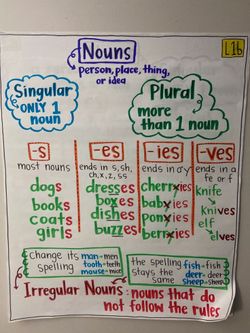 Nouns
L16
person, place, thing,
or idea
Singular
ONLY 1
noun
Plural
more
than 1 noun
-s
-es
-ies
-ves
most nouns
ends in s, sh,
ch, x, z, ss
ends in a y
ends in a
fe or f
dogs
books
coats
girls
dresses
boxes
dishes
buzzes
cherryies
babyies
ponyies
berryies
knife
knives
elf
elves
Change its
spelling
man-men
tooth-teeth
mouse-mice
the spelling
stays the
same
fish-fish
deer-deer
sheep-sheep
Irregular Nouns: nouns that do
not follow the rules